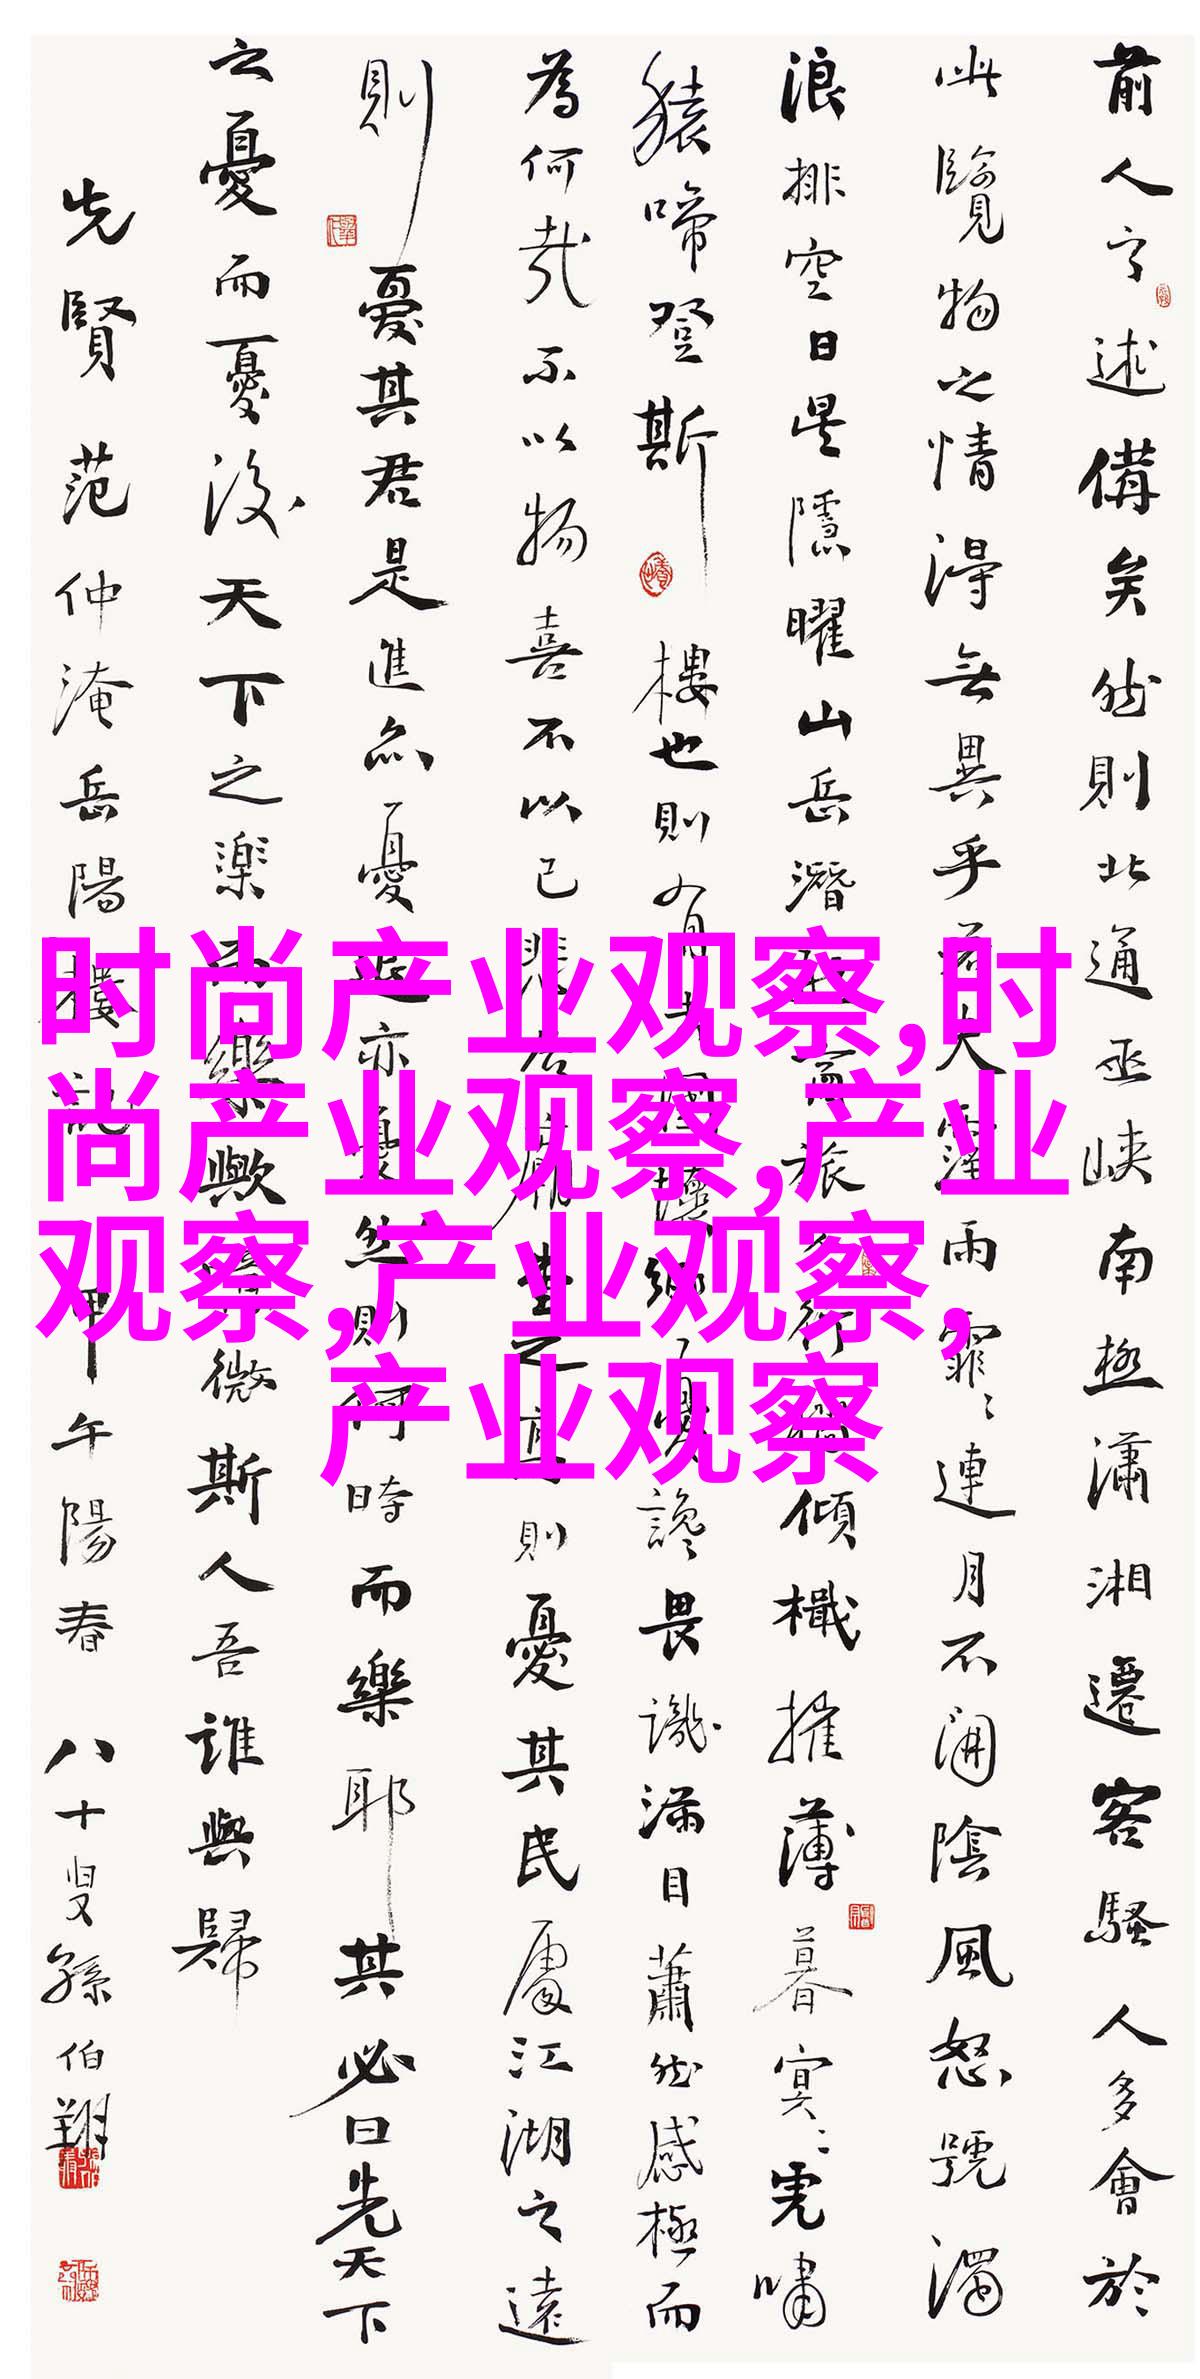 前人之述備矣然則北通巫峽南極瀟湘遷客騷人多會於
此覽物之情得無異乎若夫霪雨霏〻連月不開陰風怒號濁
浪排空日星隱曜山岳潛形商旅不行檣傾檝摧薄暮冥〻虎嘯
猿啼登斯樓也則有去國懷鄉憂讒畏譏滿目蕭然感極而
為何哉不以物喜不以己悲居廟堂之高則憂其民處江湖之遠
則憂其君是進亦憂退亦憂然則何時而樂耶其必曰先天下
之憂而憂後天下之樂而樂歟噫微斯人吾誰與歸
先賢范仲淹岳陽樓記 甲午陽春 八十叟孫伯翔
时尚产业观察,时
尚产业观察,产业
观察,产业观察,
产业观察